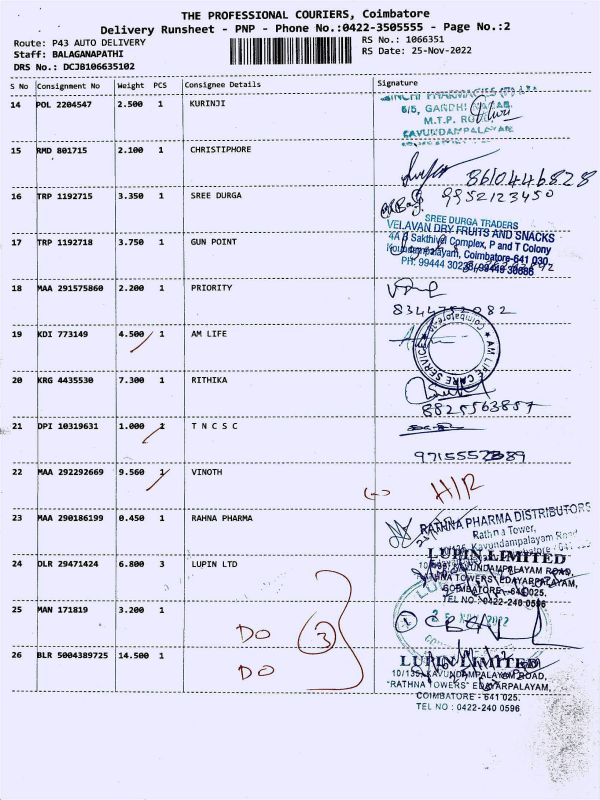 THE PROFESSIONAL COURIERS, Coimbatore
Delivery Runsheet - PNP - Phone No.:0422-3505555 - Page No.:2
Route: P43 AUTO DELIVERY
RS No.: 1066351
Staff: BALAGANAPATHI
RS Date: 25-Nov-2022
DRS No.: DCJB106635102
S No Consignment No Weight PCS Consignee Details Signature
14 POL 2204547 2.500 1 KURINJI
5/5, GANDHI
M.T.P.
KAVUNDAMPALAYAM
15 RMD 801715 2.100 1 CHRISTIPHORE
8610446828
16 TRP 1192715 3.350 1 SREE DURGA
9952123450
SREE DURGA TRADERS
17 TRP 1192718 3.750 1 GUN POINT
VELAVAN DRY FRUITS AND SNACKS
Sakthivel Complex, P and T Colony
Coimbatore-641 030
PH: 99444 30236, 99449 30686
18 MAA 291575860 2.200 1 PRIORITY
19 KDI 773149 4.500 1 AM LIFE
★ AM LIFE CARE SERVICE ★
20 KRG 4435530 7.300 1 RITHIKA
8825563857
21 DPI 10319631 1.000 1 T N C S C
22 MAA 292292669 9.560 1 VINOTH
H/R
23 MAA 290186199 0.450 1 RAHNA PHARMA
RATHNA PHARMA DISTRIBUTORS
Rathna Tower,
Kavundampalayam Road
24 DLR 29471424 6.800 3 LUPIN LTD
LUPIN LIMITED
KAVUNDAMPALAYAM ROAD,
RATHNA TOWERS" EDAYARPALAYAM,
COIMBATORE - 641 025.
TEL NO : 0422-240 0596
25 MAN 171819 3.200 1
DO
3
1
2022
26 BLR 5004389725 14.500 1
DO
LUPIN LIMITED
10/135, KAVUNDAMPALAYAM ROAD,
"RATHNA TOWERS" EDAYARPALAYAM,
COIMBATORE - 641 025.
TEL NO : 0422-240 0596